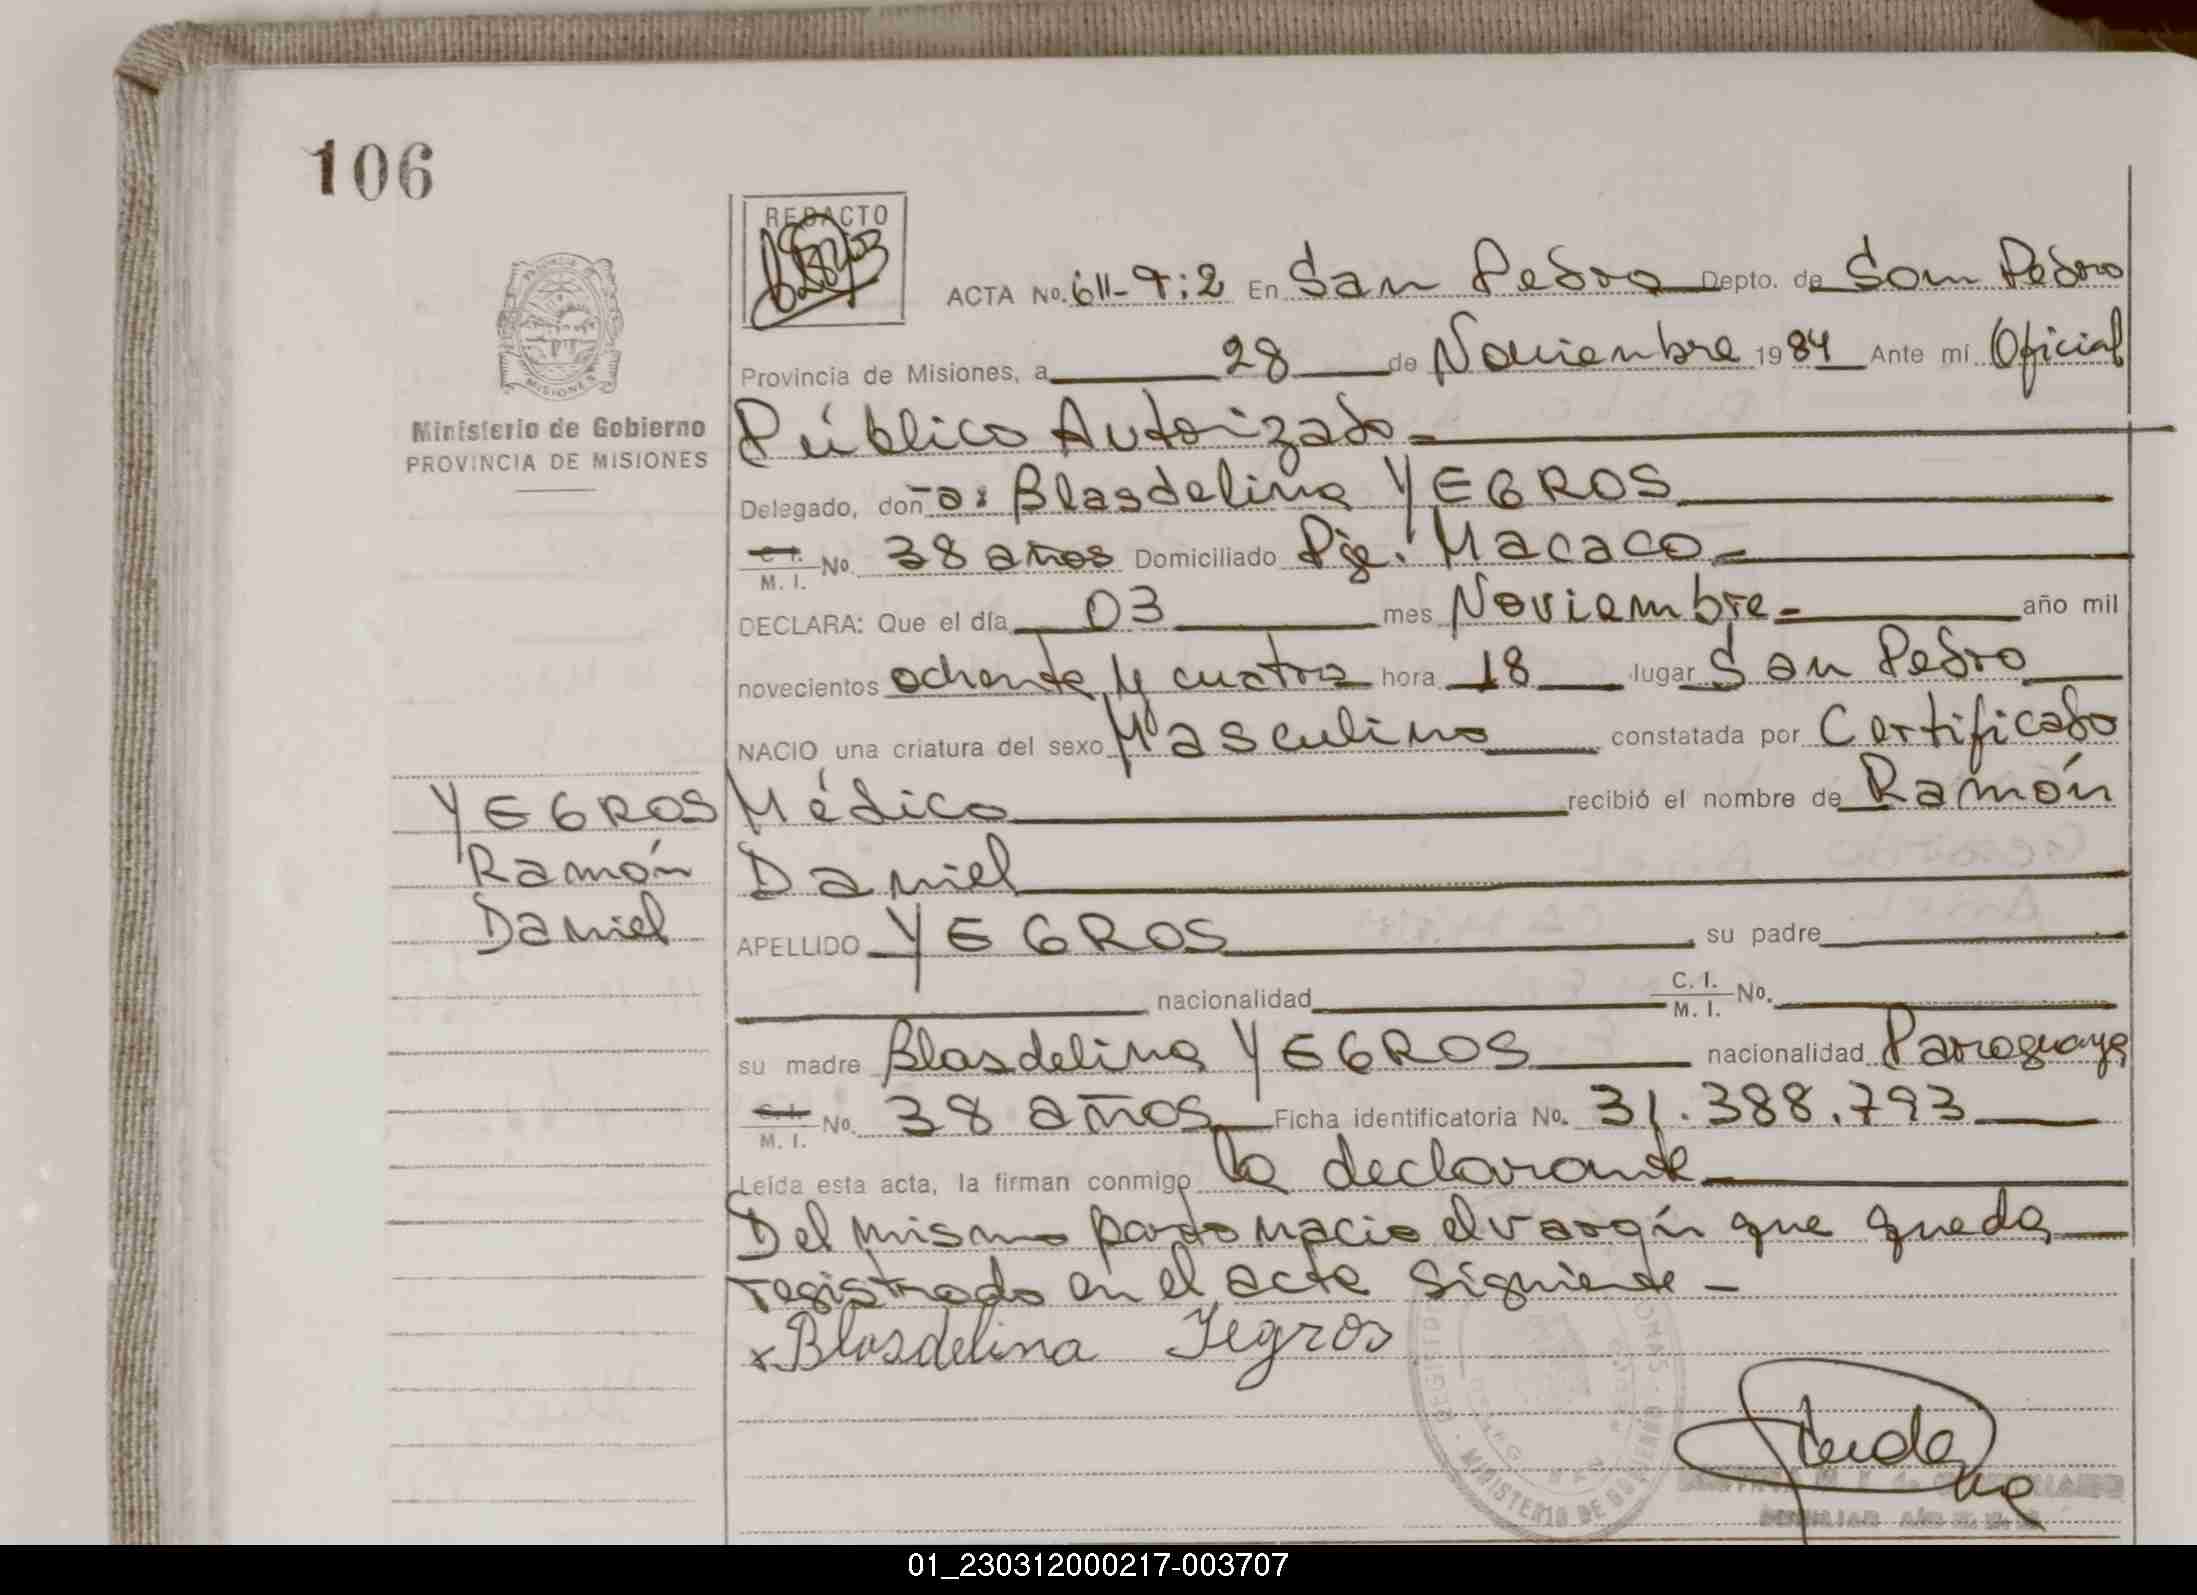 106
REDACTO
ACTA No. 611-9:2 En San Pedro Depto. de San Pedro
Provincia de Misiones, a 28 de Noviembre 1984 Ante mí Oficial
Ministerio de Gobierno
PROVINCIA DE MISIONES
Público Autorizado
Delegado, don -a: Blasdelina YEGROS
C. I. M. I. No. 38 años Domiciliado Pje. Macaco
DECLARA: Que el día 03 mes Noviembre año mil
novecientos ochenta y cuatro hora 18 lugar San Pedro
NACIO una criatura del sexo Masculino constatada por Certificado
YEGROS
Médico recibió el nombre de Ramón
Ramón
Daniel
Daniel
APELLIDO YEGROS su padre
nacionalidad C. I. M. I. No.
su madre Blasdelina YEGROS nacionalidad Paraguaya
C. I. M. I. No. 38 años Ficha identificatoria No. 31.388.793
Leída esta acta, la firman conmigo la declarante
Del mismo parto nacio el varón que queda
registrado en el acta siguiente -
x Blasdelina Yegros
MINISTERIO DE GOBIERNO
01_230312000217-003707